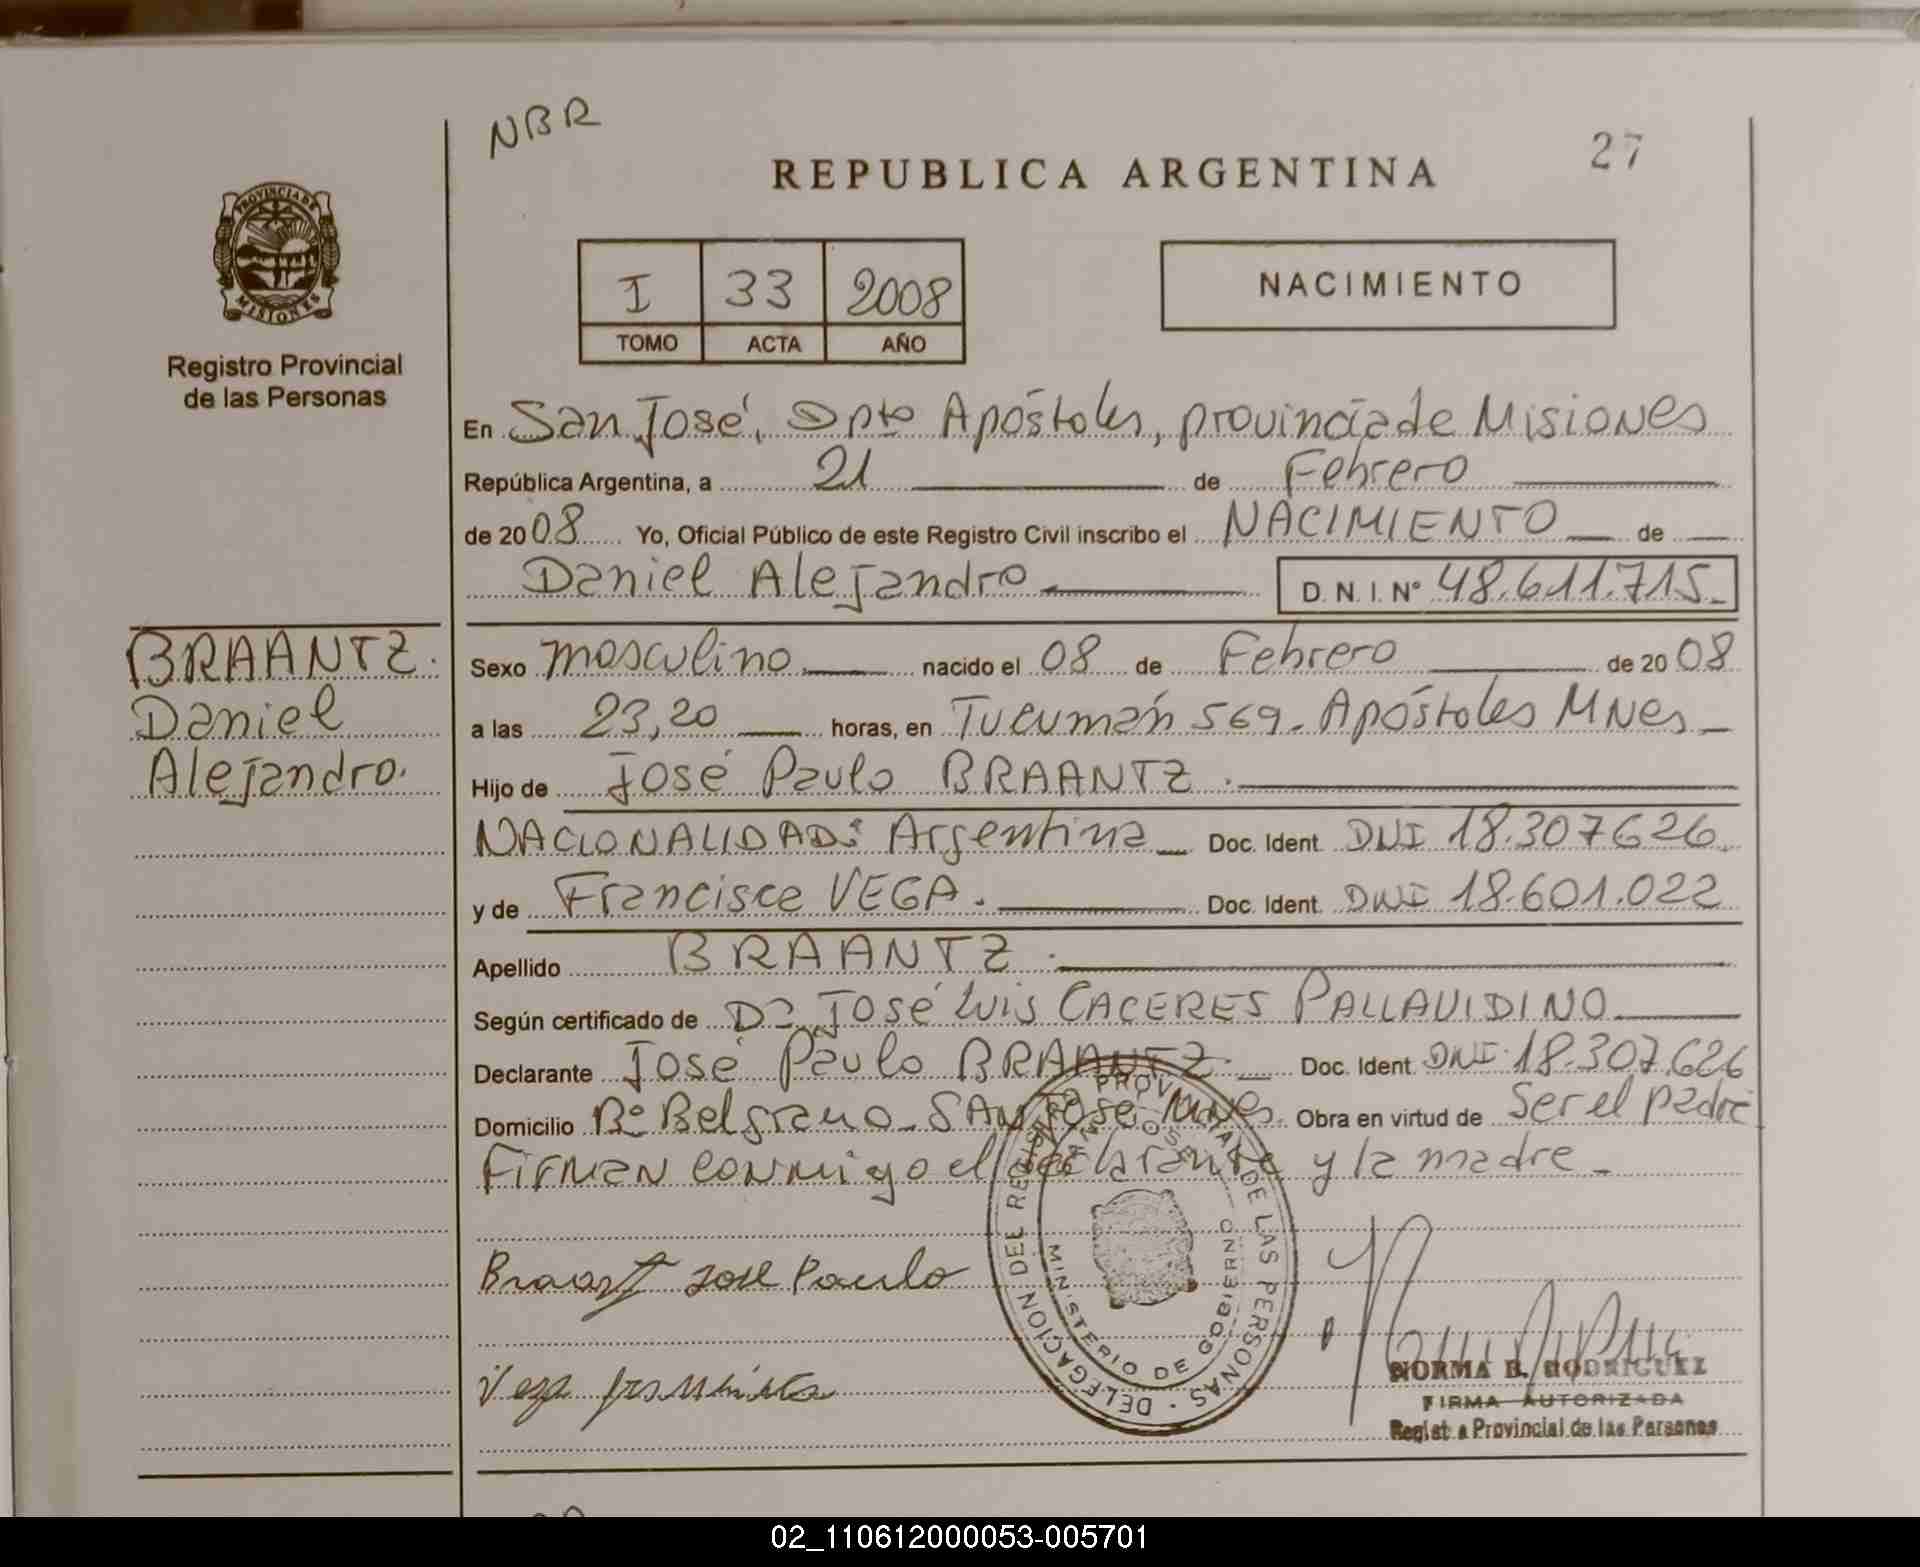 NBR
27
REPUBLICA ARGENTINA
PROVINCIA DE
MISIONES
Registro Provincial
de las Personas
I 33 2008
TOMO ACTA AÑO
NACIMIENTO
En San José, Dpto Apóstoles, provincia de Misiones
República Argentina, a 21 de Febrero
de 2008 Yo, Oficial Público de este Registro Civil inscribo el NACIMIENTO de
Daniel Alejandro D.N.I. Nº 48.611.715.
BRAANTZ.
Daniel
Alejandro.
Sexo masculino nacido el 08 de Febrero de 2008
a las 23,20 horas, en Tucumán 569. Apóstoles MNes
Hijo de José Paulo BRAANTZ.
NACIONALIDAD: Argentina Doc. Ident. DNI 18.307626.
y de Francisca VEGA. Doc. Ident. DNI 18.601.022
Apellido BRAANTZ.
Según certificado de Dr. José Luis CACERES PALLAVIDINO
Declarante José Paulo BRAANTZ. Doc. Ident. DNI 18.307.626
Domicilio Bº Belgrano. SAN José. MNes. Obra en virtud de Ser el padre
Firman conmigo el declarante y la madre.
DELEGACION DEL REGISTRO PROVINCIAL DE LAS PERSONAS
SAN JOSE
MINISTERIO DE GOBIERNO
Braantz José Paulo
Vega Francisca
NORMA B. RODRIGUEZ
FIRMA AUTORIZADA
Registro Provincial de las Personas
02_110612000053-005701